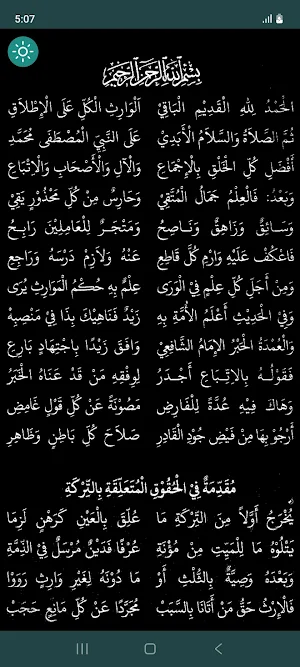 5:07
بِسْمِ اللهِ الرَّحْمٰنِ الرَّحِيْمِ
الْحَمْدُ لِلهِ الْقَدِيْمِ الْبَاقِيْ اَلْوَارِثِ الْكُلِّ عَلَى الْإِطْلَاقِ
ثُمَّ الصَّلَاةُ وَالسَّلَامُ الْأَبَدِيْ عَلَى النَّبِيِّ الْمُصْطَفَى مُحَمَّدِ
أَفْضَلِ كُلِّ الْخَلْقِ بِالْإِجْمَاعِ وَالْآلِ وَالْأَصْحَابِ وَالْاِتْبَاعِ
وَبَعْدُ: فَالْعِلْمُ جَمَالُ الْمُتَّقِيْ وَحَارِسٌ مِنْ كُلِّ مَحْذُوْرٍ يَقِيْ
وَسَـائِقٌ وَزَاهِقٌ وَنَاصِـحُ وَمَتْجَـرٌ لِلْعَامِلِيْنَ رَابِـحُ
فَاعْكُفْ عَلَيْهِ وَارْمِ كُلَّ قَاطِعِ عَنْهُ وَلَازِمْ دَرْسَهُ وَرَاجِعِ
وَمِنْ أَجَلِّ كُلِّ عِلْمٍ فِيْ الْوَرَى عِلْمٌ بِهِ حُكْمُ الْمَوَارِثِ يُرَى
وَفِيْ الْحَدِيْثِ أَعْلَمُ الْأُمَّةِ بِهِ زَيْدٌ فَنَاهِيْكَ بِذَا فِيْ مَنْصِبِهْ
وَالْعُمْدَةُ الْحَبْرُ الْإِمَامُ الشَّافِعِيْ وَافَقَ زَيْدًا بِاجْتِهَادٍ بَارِعِ
فَقَوْلُـهُ بِالْاِتِّبَـاعِ أَجْـدَرُ لِوِفْقِهِ مَنْ قَدْ عَنَاهُ الْخَبَرُ
وَهَاكَ فِيْهِ عُدَّةً لِلْفَارِضِ مَصُوْنَةً عَنْ كُلِّ قَوْلٍ غَامِضِ
أَرْجُوْ بِهَا مِنْ فَيْضِ جُوْدِ الْقَادِرِ صَلَاحَ كُلِّ بَاطِنٍ وَظَاهِرِ
مُقَدِّمَةٌ فِيْ الْحُقُوْقِ الْمُتَعَلِّقَةِ بِالتِّرْكَةِ
يُخْرَجُ أَوَّلًا مِنَ التِّرْكَةِ مَا عُلِّقَ بِالْعَيْنِ كَرَهْنٍ لَزِمَا
يَتْلُوْهُ مَا لِلْمَيْتِ مِنْ مُؤْنَةِ عُرْفًا فَدَيْنٌ مُرْسَلٌ فِيْ الذِّمَّةِ
وَبَعْدَهُ وَصِيَّةٌ بِالثُّلْثِ أَوْ مَا دُوْنَهُ لِغَيْرِ وَارِثٍ رَوَوْا
فَالْإِرْثُ حَقُّ مَنْ أَتَانَا بِالسَّبَبْ مُجَرَّدًا عَنْ كُلِّ مَانِعٍ حَجَبْ